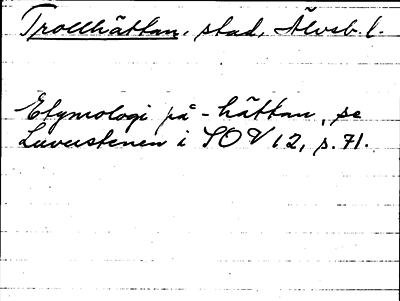 Trollhättan, stad, Älvsb. l.
Etymologi på -hättan, se
Luverstenen i SOV 12, s. 71.